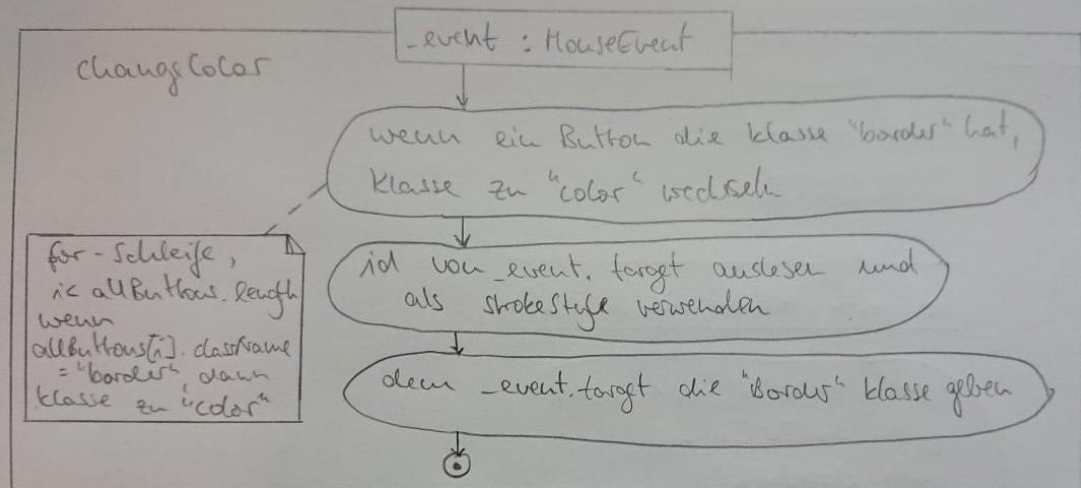 _event : MouseEvent
changeColor
wenn ein Button die klasse "border" hat,
Klasse zu "color" wechseln
for-Schleife,
i< allButtons.length
wenn
allButtons[i].className
= "border", dann
klasse zu "color"
id von _event.target auslesen und
als strokeStyle verwenden
dem _event.target die "Border" klasse geben